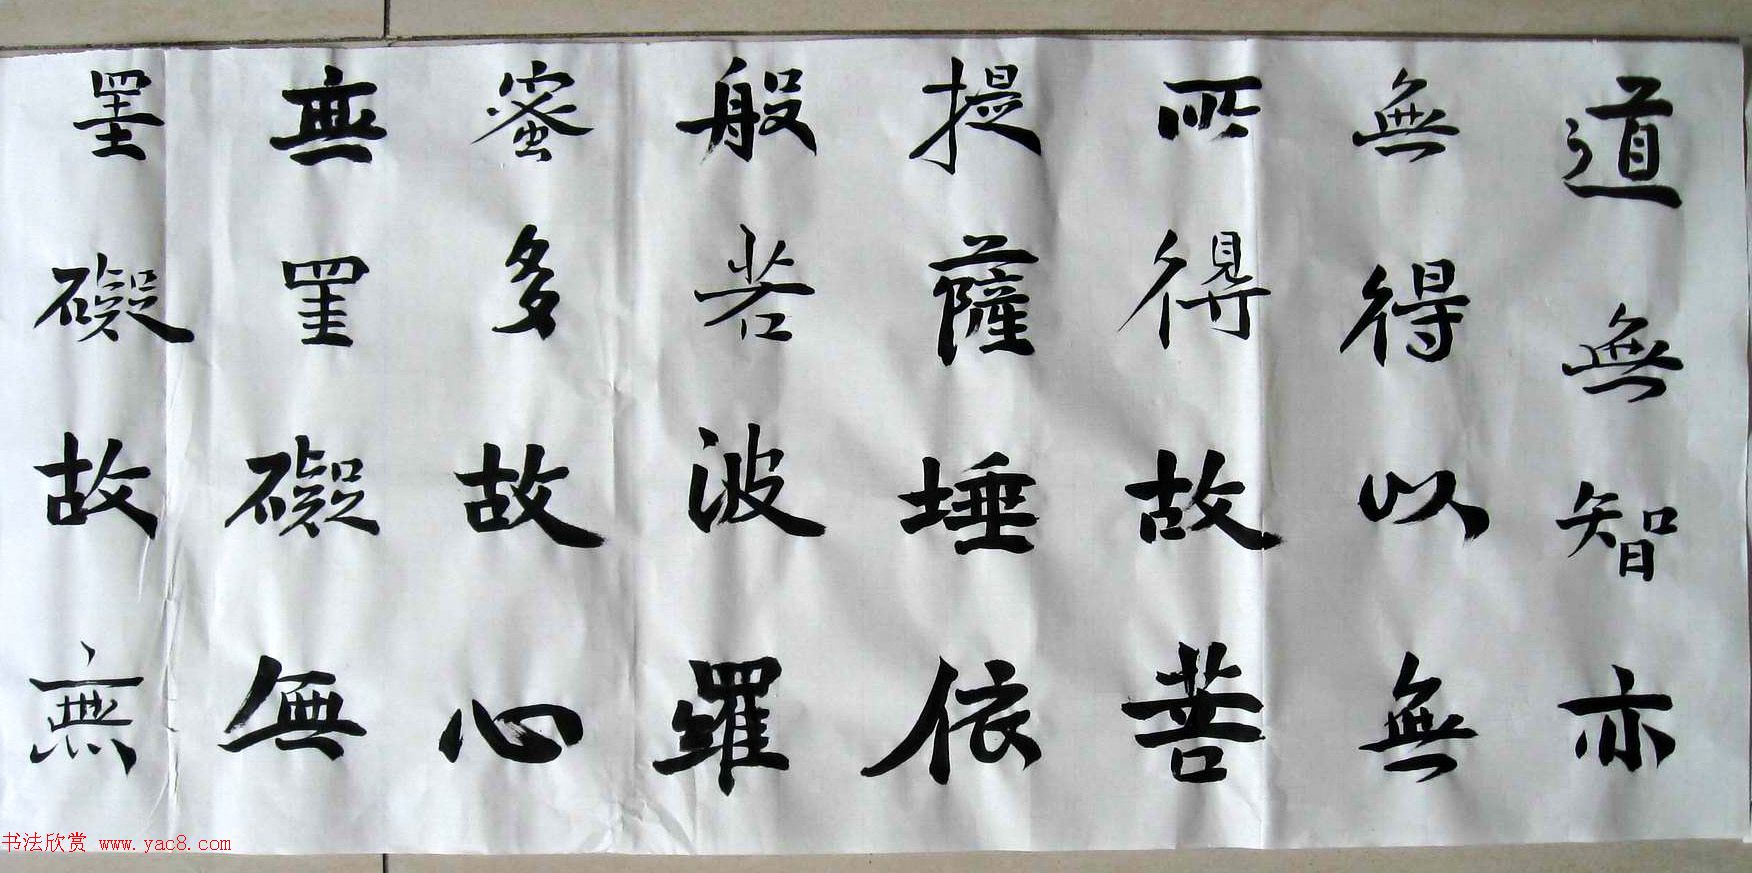 道無智亦
無得以無
所得故菩
提薩埵依
般若波羅
蜜多故心
無罣礙無
罣礙故無
书法欣赏 www.yac8.com